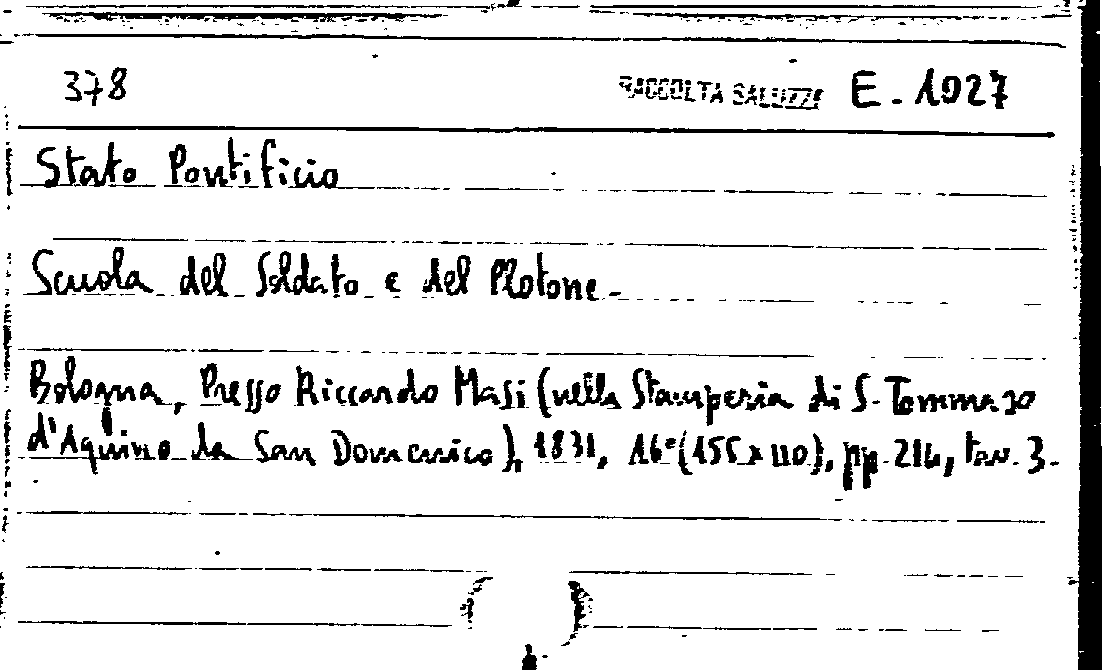 378 RACCOLTA SALUZZO E. 1027
Stato Pontificio
Scuola del Soldato e del Plotone.
Bologna, Presso Riccardo Masi (nella Stamperia di S. Tommaso
d'Aquino da San Domenico), 1831, 16° (155 x 110), pp. 214, tav. 3.